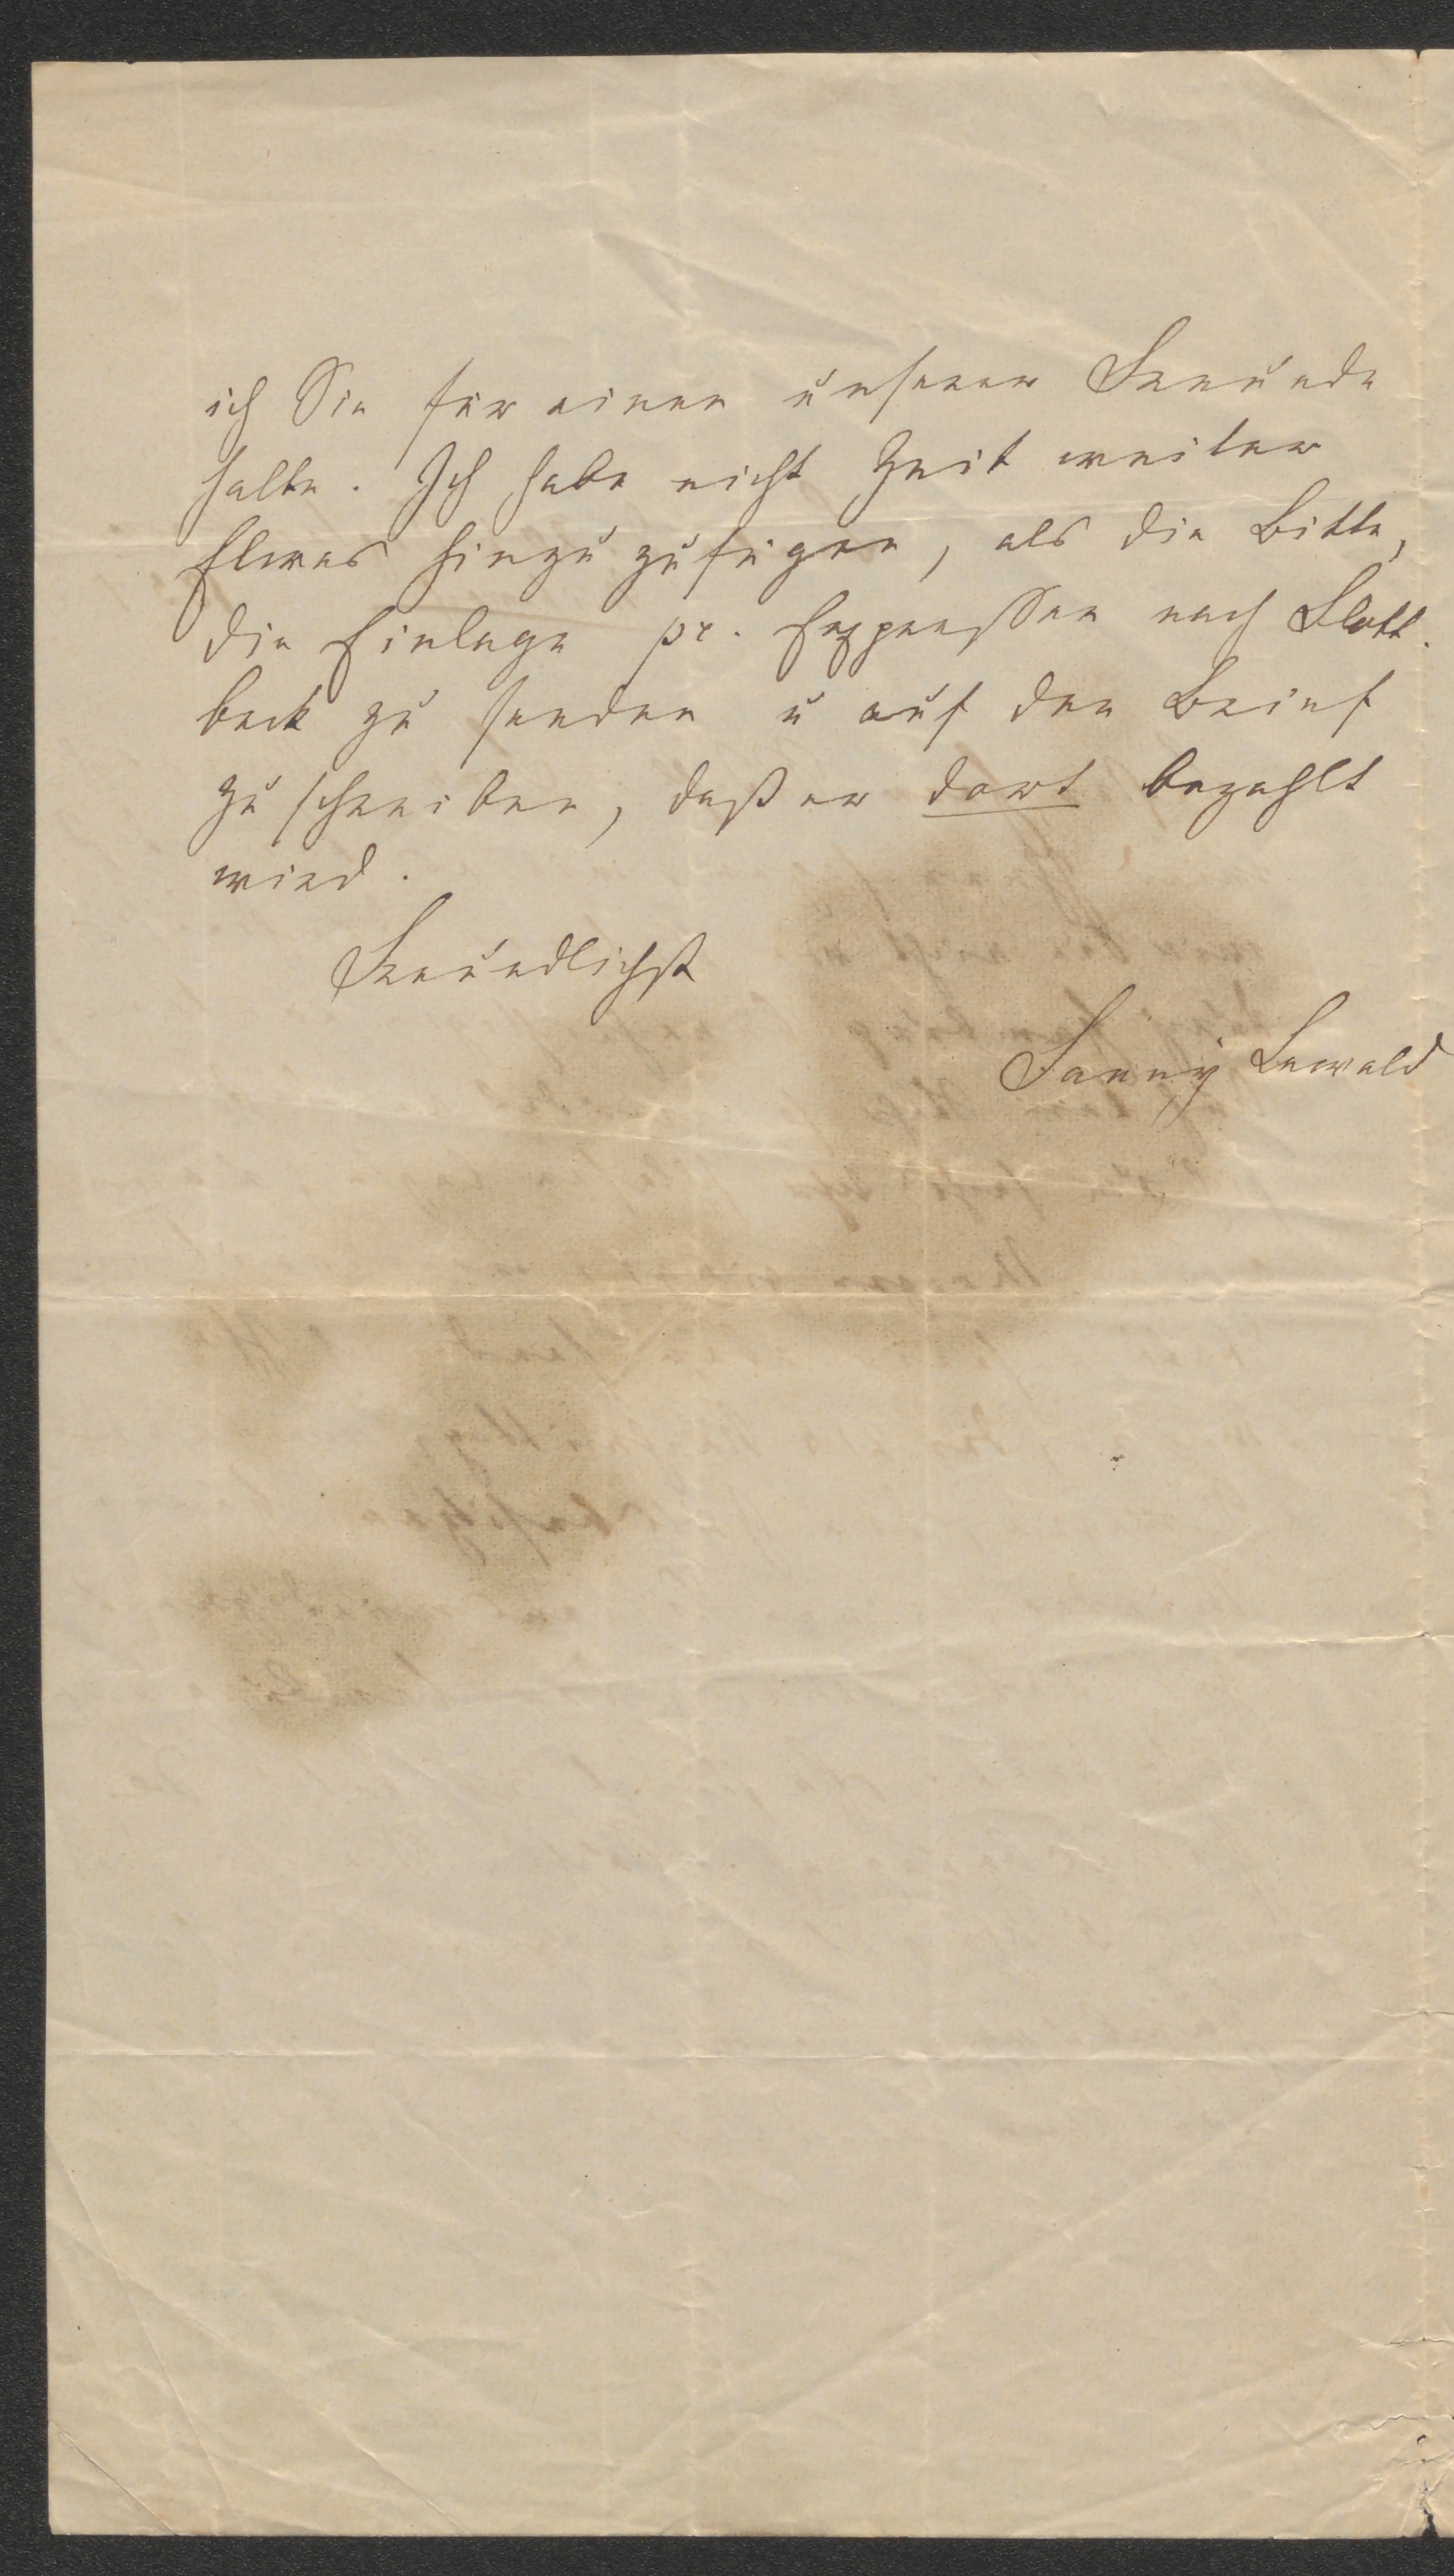 ich Sie für einen unserer Freunde
halte. Ich habe nicht Zeit weiter
Etwas hinzu zufügen, als die Bitte,
die Einlage pr. Expressen nach Flott¬
beck zu senden u auf den Brief
zu schreiben, daß er dort bezahlt
wird.
Freundlichst
Fanny Lewald